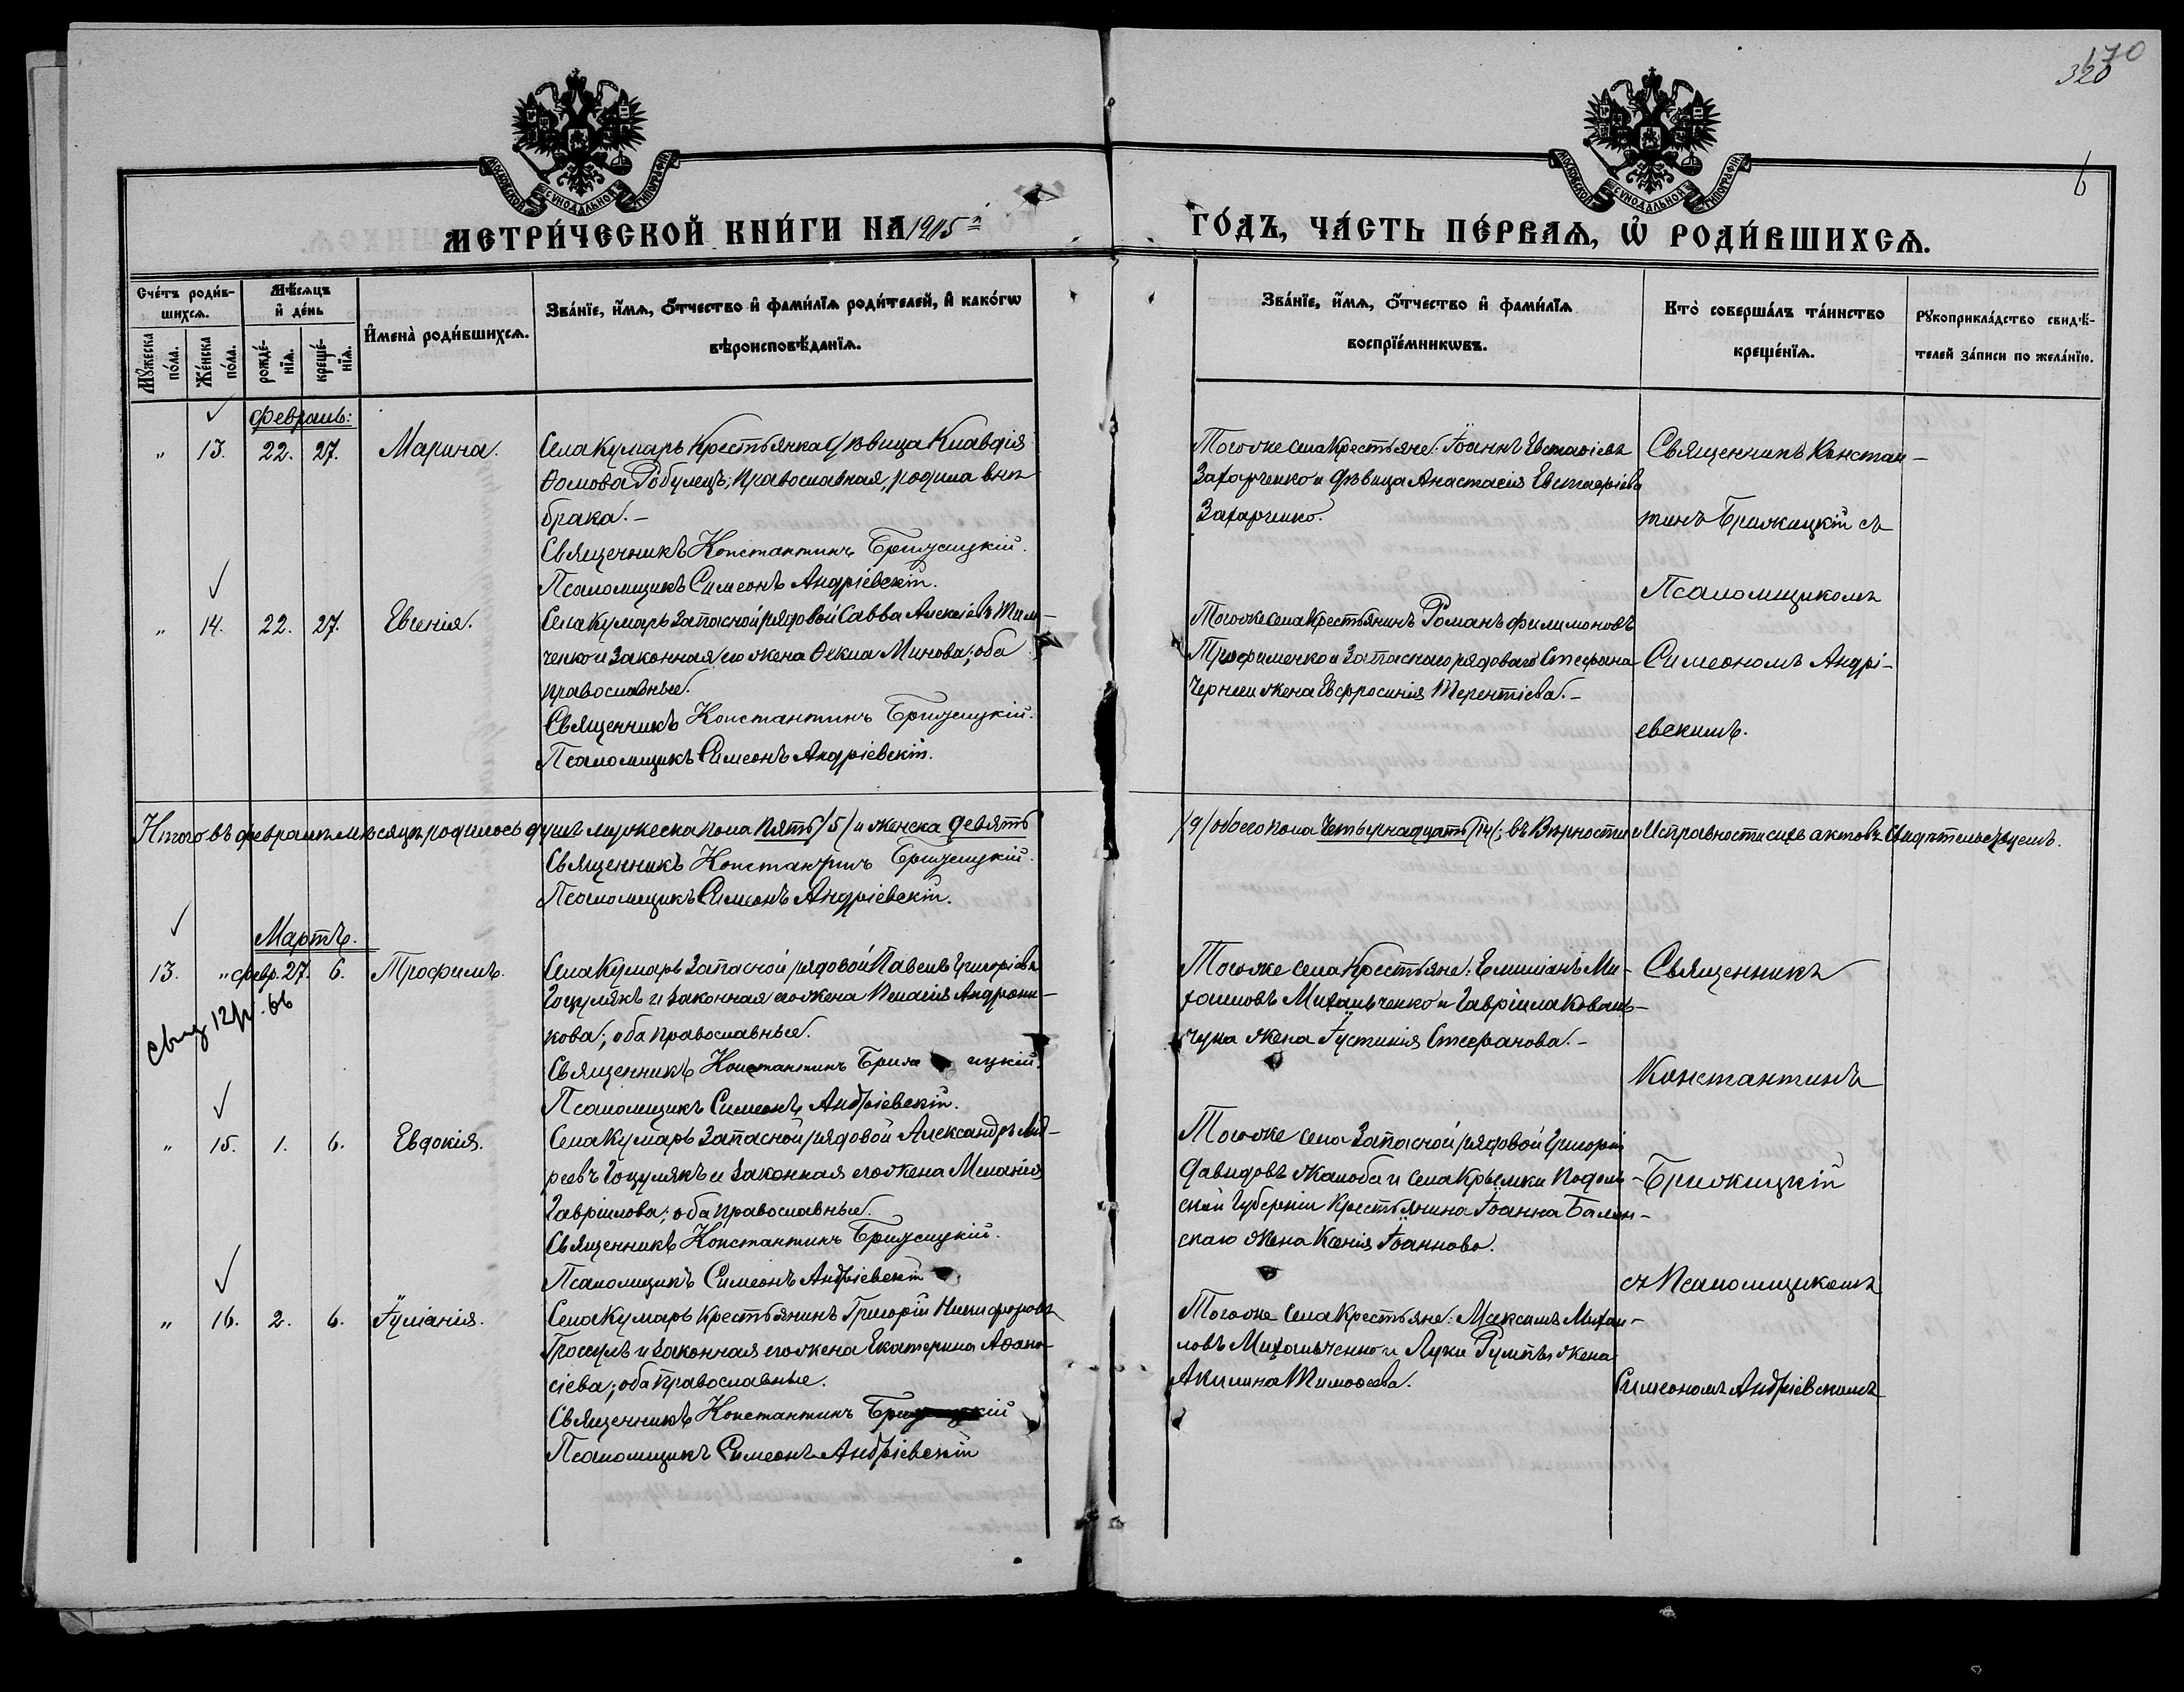 170
320
6
МОСКОВСКОЙ СУНОДАЛЬНОЙ ТИПОГРАФІИ
МОСКОВСКОЙ СУНОДАЛЬНОЙ ТИПОГРАФІИ
МЕТРИ́ЧЕСКОЙ КНИ́ГИ НА 1905й
ГО́ДЪ, ЧА́СТЬ ПЕ́РВАѦ, Ѡ҆ РОДИ́ВШИХСѦ.
Сче́тъ роди́в-
шихсѧ.
Мꙋ́жеска по́ла.
Же́нска по́ла.
Мѣ́сѧцъ
и҆ де́нь
рожде́-нїѧ.
креще́-нїѧ.
И҆мена̀ роди́вшихсѧ.
Зва́нїе, и҆́мѧ, ѻ҆́тчество и҆ фами́лїѧ роди́телей, и҆ како́гѡ
вѣроисповѣ́данїѧ.
Зва́нїе, и҆́мѧ, ѻ҆́тчество и҆ фами́лїѧ
воспрїе́мникѡвъ.
Кто̀ соверша́лъ та́инство
креще́нїѧ.
Рꙋкоприкла́дство свидѣ́-
телей за́писи по жела́нїю.
Февраль:
" 13. 22. 27. Марина.
Села Кумарь Крестьянка дѣвица Клавдія
Ѳомова Робулецъ; православная, родила внѣ
брака. –
Священникъ Константинъ Брилжицкій.
Псаломщикъ Симеонъ Андріевскій.
Тогоже села Крестьяне: Іоаннъ Евстафіевъ
Захарченко и дѣвица Анастасія Евстафіева
Захарченко.
Священникъ Констан-
тинъ Брилжицкій съ
Псаломщикомъ
Симеономъ Андрі-
евскимъ.
" 14. 22. 27. Евгенія.
Села Кумарь Запасной рядовой Савва Алексіевъ Тим-
ченко и Законная его жена Ѳекла Минова; оба
православные.
Священникъ Константинъ Брилжицкій.
Псаломщикъ Симеонъ Андріевскій.
Тогоже села Крестьянинъ Романъ Филимоновъ
Трофименко и Запаснаго рядоваго Стефана
жена Евфросинія Терентіева. –
Итого въ февралѣ мѣсяцѣ родилось душъ мужеска пола Пять /5/ и женска девять
/9/ обоего пола Четырнадцать /14/; въ Вѣрности и Исправности сихъ актовъ Свидѣтельствуемъ.
Священникъ Константинъ Брилжицкій.
Псаломщикъ Симеонъ Андріевскій.
Мартъ.
13. " февр. 27. 6. Трофимъ.
Села Кумарь Запасной рядовой Павелъ Григоріевъ
Гоцулякъ и Законная его жена Пелагія Андрони-
кова; оба православные.
Священникъ Константинъ Брилжицкій.
Псаломщикъ Симеонъ Андріевскій.
Тогоже села Крестьяне: Емиліанъ Ми-
хаиловъ Михальченко и Гавріила Коваль-
чука жена Іустинія Стефанова. –
Священникъ
Константинъ
Брилжицкій
съ Псаломщикомъ
Симеономъ Андріевскимъ
" 15. 1. 6. Евдокія.
Села Кумарь Запасной рядовой Александръ Анд-
реевъ Гоцулякъ и Законная его жена Меланія
Гавріилова; оба православные.
Священникъ Константинъ Брилжицкій.
Псаломщикъ Симеонъ Андріевскій
Тогоже села Запасной рядовой Григорій
Давидовъ Жалоба и села Крымки Подоль-
ской Губерніи Крестьянина Іоанна Балин-
скаго жена Ксенія Іоаннова.
" 16. 2. 6. Іуліанія.
Села Кумарь Крестьянинъ Григорій Никифоровъ
Гросулъ и Законная его жена Екатерина Аѳана-
сіева; оба православные.
Священникъ Константинъ Брилжицкій
Псаломщикъ Симеонъ Андріевскій
Тогоже села Крестьяне: Максимъ Михаи-
ловъ Михальченко и Луки жена
Акилина Тимоѳеева.